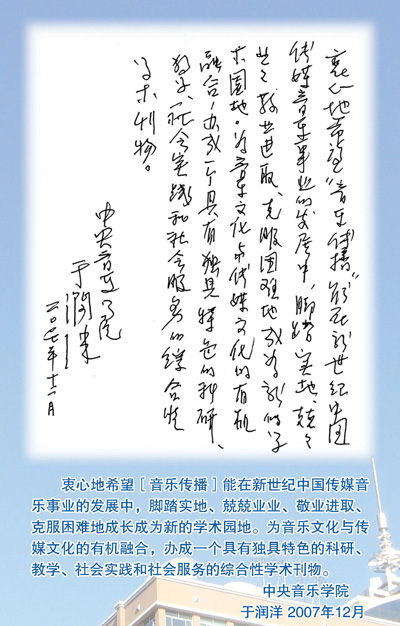 衷心地希望“音乐传播”能在新世纪中国
传媒音乐事业的发展中，脚踏实地、兢々
业々敬业进取、克服困难地成为新的学
术园地。为音乐文化与传媒文化的有机
融合，办成一个具有独具特色的科研、
教学、社会实践和社会服务的综合性
学术刊物。
中央音乐学院
于润洋
二〇〇七年十二月
衷心地希望［音乐传播］能在新世纪中国传媒音
乐事业的发展中，脚踏实地、兢兢业业、敬业进取、
克服困难地成长成为新的学术园地。为音乐文化与传
媒文化的有机融合，办成一个具有独具特色的科研、
教学、社会实践和社会服务的综合性学术刊物。
中央音乐学院
于润洋 2007年12月